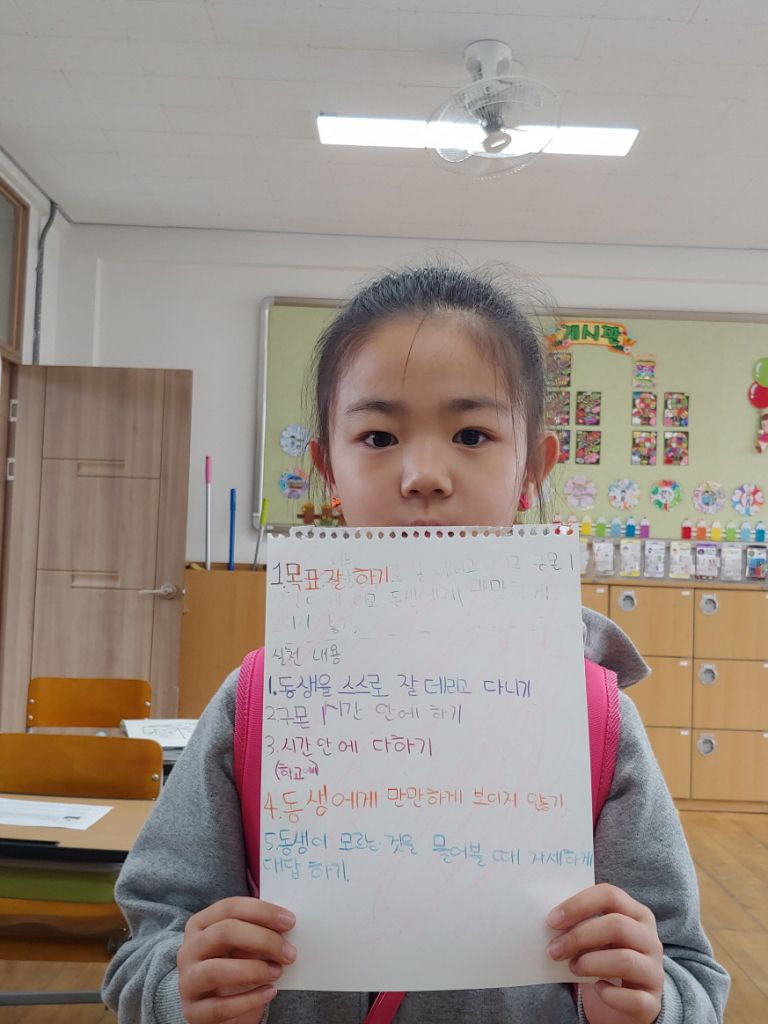 게시판
1.목표 잘 하기.
동생에게 만만하게
실천 내용
1.동생을 스스로 잘 데리고 다니기
2.구몬 1시간 안에 하기
3.시간 안에 다하기
(학교에)
4.동생에게 만만하게 보이지 않기.
5.동생이 모르는 것을 물어볼 때 자세하게
대답 하기.